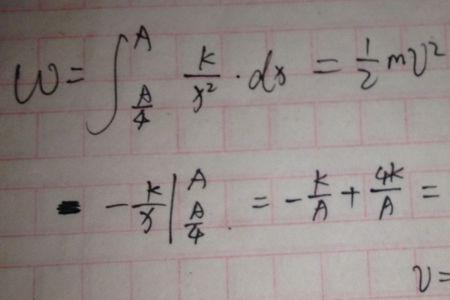 W = ∫_{A/4}^{A} k/x² · dx = 1/2 mv²
= -k/x |_{A/4}^{A} = -k/A + 4k/A =
v=